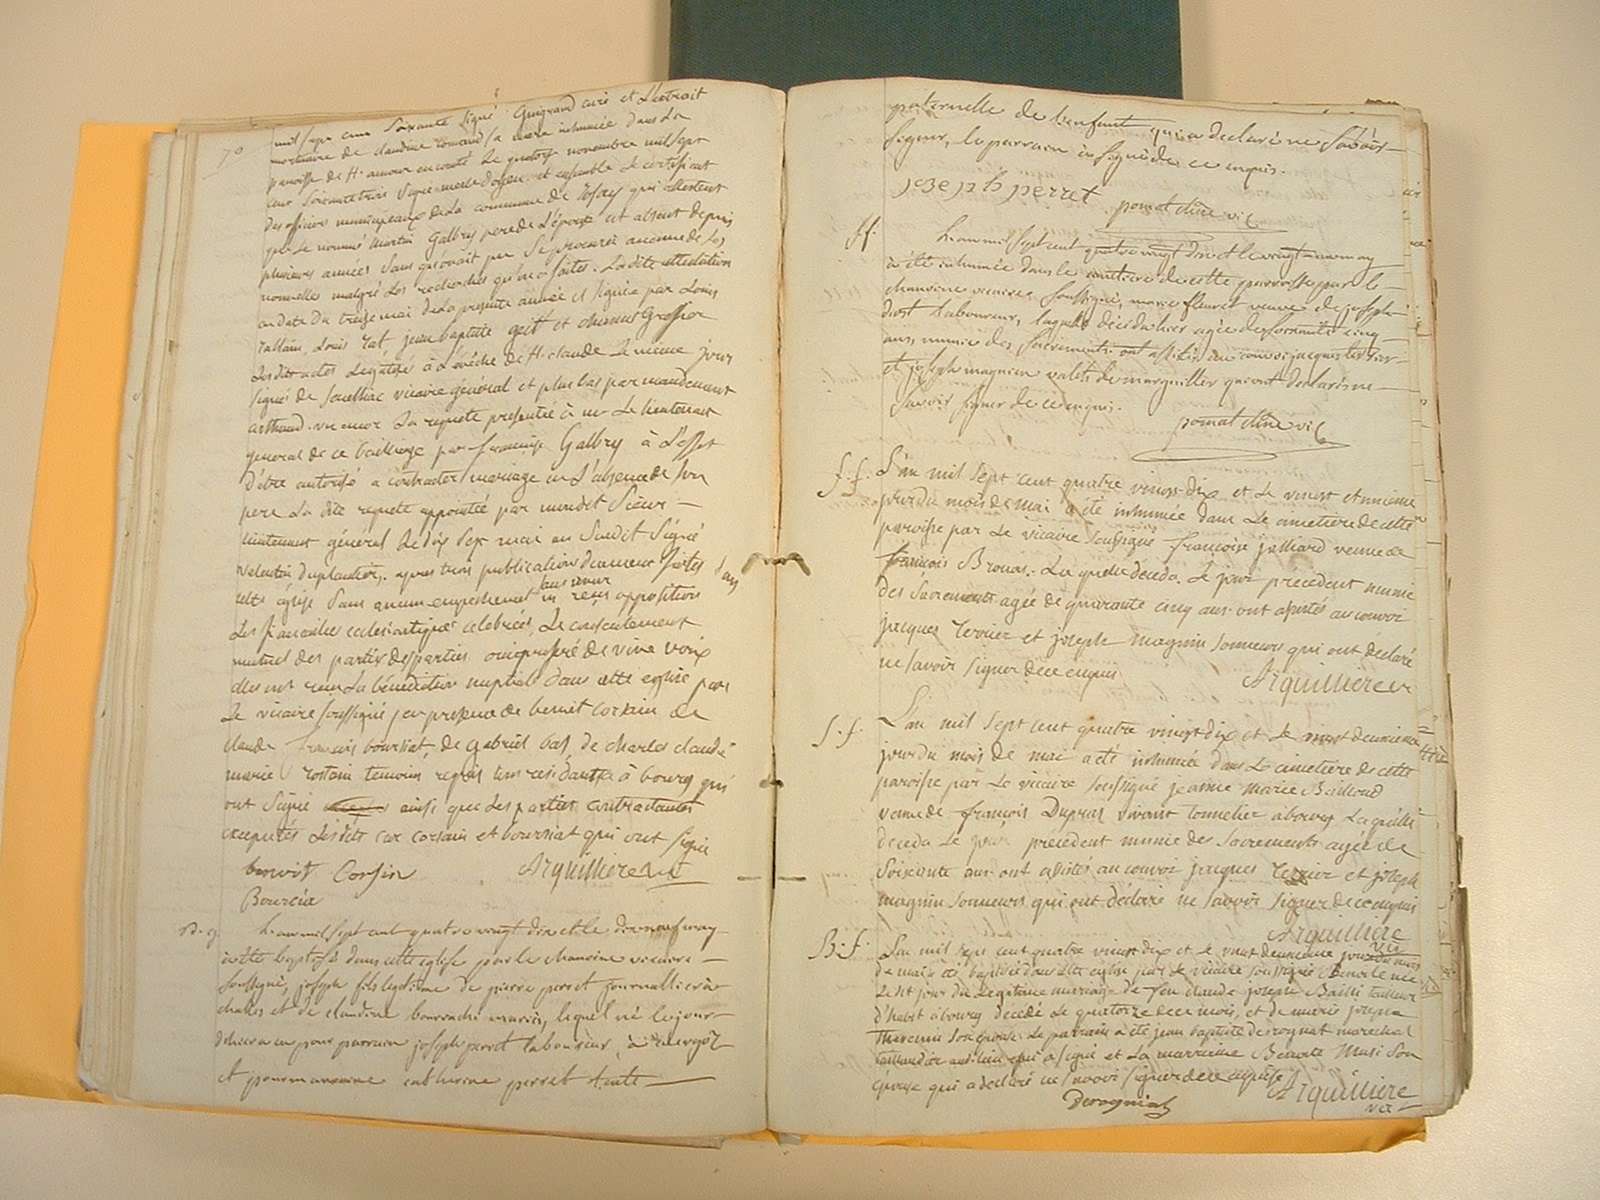 70
mil sept cent soixante signé Guigrand curé et L'extrait
mortuaire de claudine romand sa mere inhumée dans La
paroisse de St. amour en comté Le quatorze novembre mil sept
cent soixante trois signé
des officiers municipaux de La commune de qui attestent
que Le nommé Martin Galbry pere de L'épouse est absent depuis
plusieurs années sans qu'on ait pu se procurer aucune de ses
nouvelles malgré Les recherches qu'on a faites. La dite attestation
en date du treize mai de La presente année et signée par Louis
Louis rat jean baptiste et
Les dits actes Légalisé à L'evêché de St. claude Le même jour
signés de vicaire général et plus bas par mandement
vu encor La requete presentée à mr Le lieutenant
general de ce bailliage par françoise Galbry à L'effet
d'être autorisé a contracter mariage en L'absence de son
pere La dite requete appointée par mondit Sieur
lieutenant général Le dix sept mai au susdit signé
valentin duplantier. apres trois publications dans
cette église sans aucun empechement ni reçu opposition
Les fiançailles ecclesiastiques celebrées, Le consentement
mutuel des parties exprimé de vive voix
elles ont reçu La bénédiction nuptiale dans cette eglise par
Le vicaire soussigné en presence de benoit corsain de
claude françois bourciat, de gabriel bas, de charles claude
marie rostain temoins requis tous residants à bourg qui
ont signé ainsi que Les parties contractantes
exceptés car corsain et bourciat qui ont signé
benoit Corsin Arquilliere vic
Bourcia
B. g. L'an mil sept cent quatre vingt dix et le dix neuf may
a été baptisé dans cette eglise par le chanoine vicaire
soussigné, joseph fils legitime de pierre perret journallier à
challes et de claudine mariés, lequel né le jour
d'hier a eu pour parrain joseph perret laboureur, à
et pour marraine catherine perret tante
paternelle de l'enfant qui a declaré ne savoir
signer, le parrain a signé de ce enquis.
joseph perret pomat chne vic
ff. L'an mil sept cent quatre vingt dix et le vingt un may
a été inhumée dans le cimetiere de cette parroisse par le
chanoine vicaire soussigné, marie fleuret veuve de joseph
laboureur, laquelle décéda hier agée de soixante cinq
ans, munie des sacrements. ont assistés au convoi jacques terrier
et joseph magnien valets de marguillier qui ont declarés ne
savoir signer de ce enquis.
pomat chne vic
f. f. L'an mil sept cent quatre vingt dix et Le vingt et unieme
jour du mois de mai a été inhumée dans Le cimetiere de cette
paroisse par Le vicaire soussigné françoise julliard veuve de
françois Brouas. La quelle deceda Le jour precedent munie
des sacrements agée de quarante cinq ans. ont assistés au convoi
jacques terrier et joseph magnin sonneurs qui ont déclaré
ne savoir signer de ce enquis
Arquilliere vic
f. f. L'an mil sept cent quatre vingt dix et Le vingt deuxieme
jour du mois de mai a été inhumée dans Le cimetiere de cette
paroisse par Le vicaire soussigné jeanne marie Bailloud
veuve de françois Dupras vivant tonnelier a bourg La quelle
deceda Le jour precedent munie des sacrements agée de
soixante ans. ont assistés au convoi jacques terrier et joseph
magnin sonneurs qui ont déclaré ne savoir signer de ce enquis
Arquilliere
vic
B. f. L'an mil sept cent quatre vingt dix et Le vingt deuxieme jour du mois
de mai a été baptisée dans cette eglise par Le vicaire soussigné Benoite née
Le dit jour du Legitime mariage de feu claude joseph Bailli tailleur
d'habit a bourg decedé Le quatorze de ce mois, et de marie josepha
Thevenin son epouse. Le parrain a été jean baptiste derognat marechal
taillandier qui a signé et La marraine Benoite Musi son
épouse qui a declaré ne savoir signer de ce enquise
Arquilliere
vic
Derognat